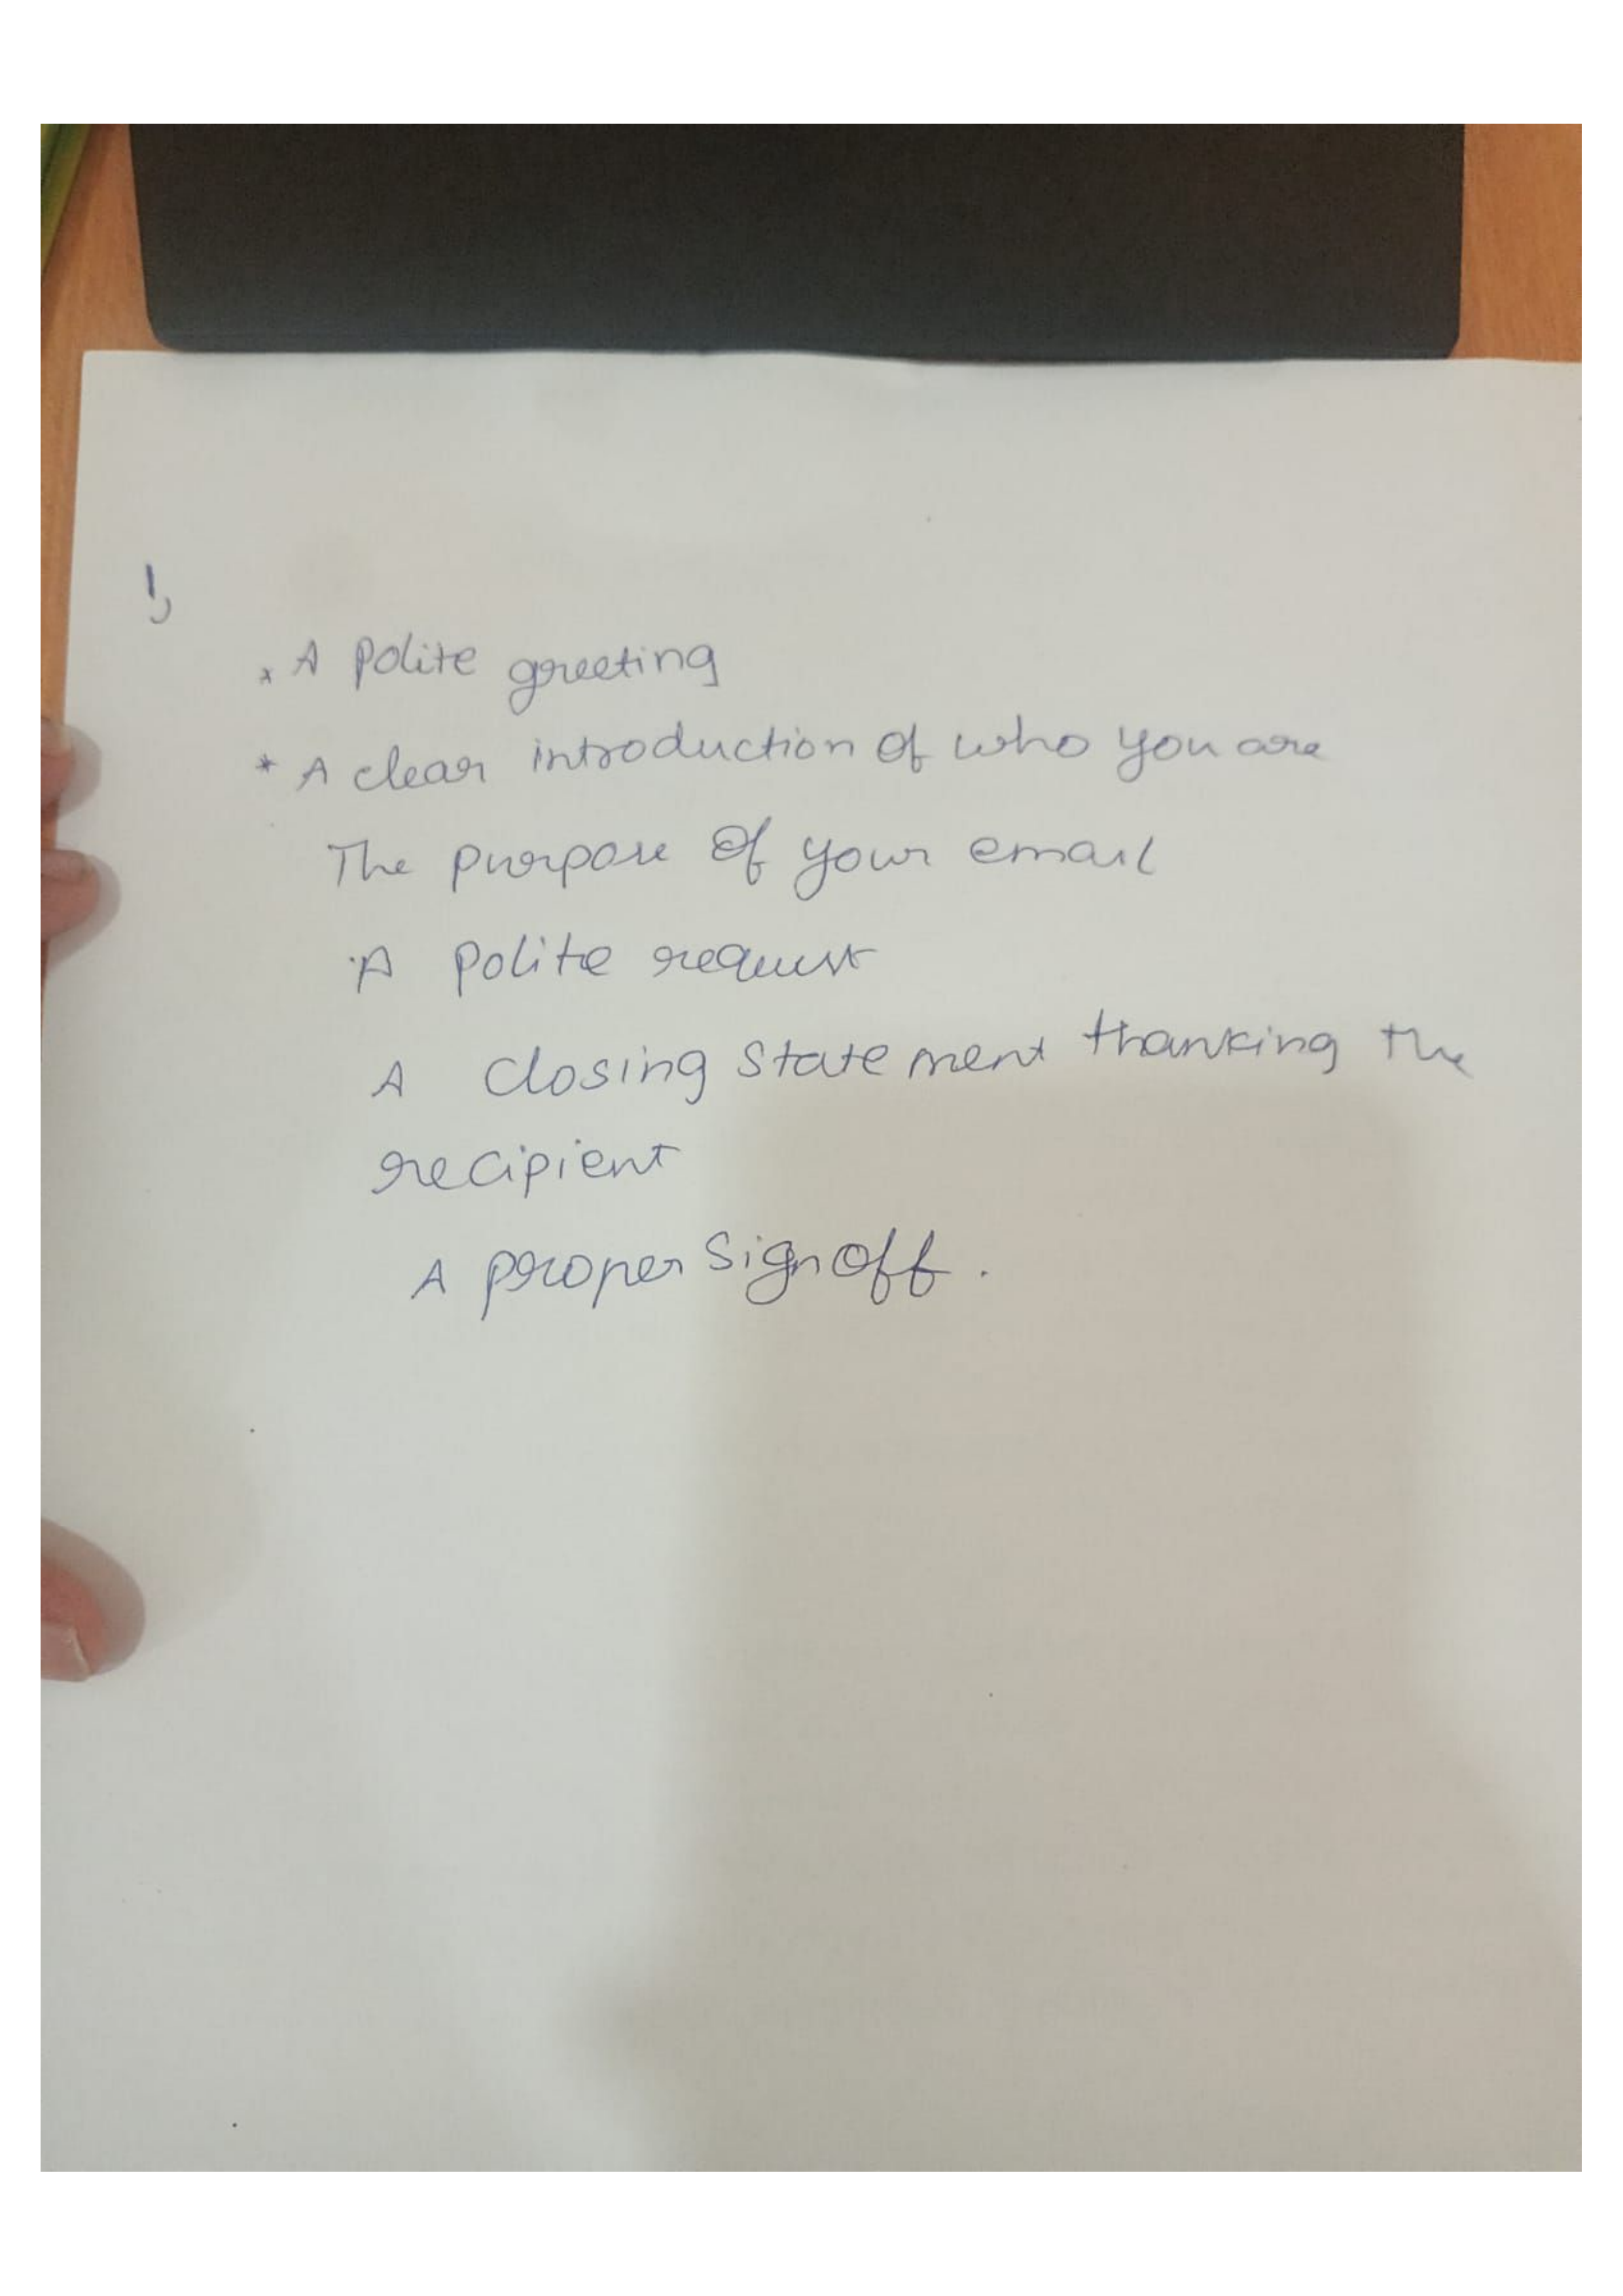 1,
* A polite greeting
* A clear introduction of who you are
The purpose of your email
A polite request
A closing statement thanking the
recipient
A proper sign off.